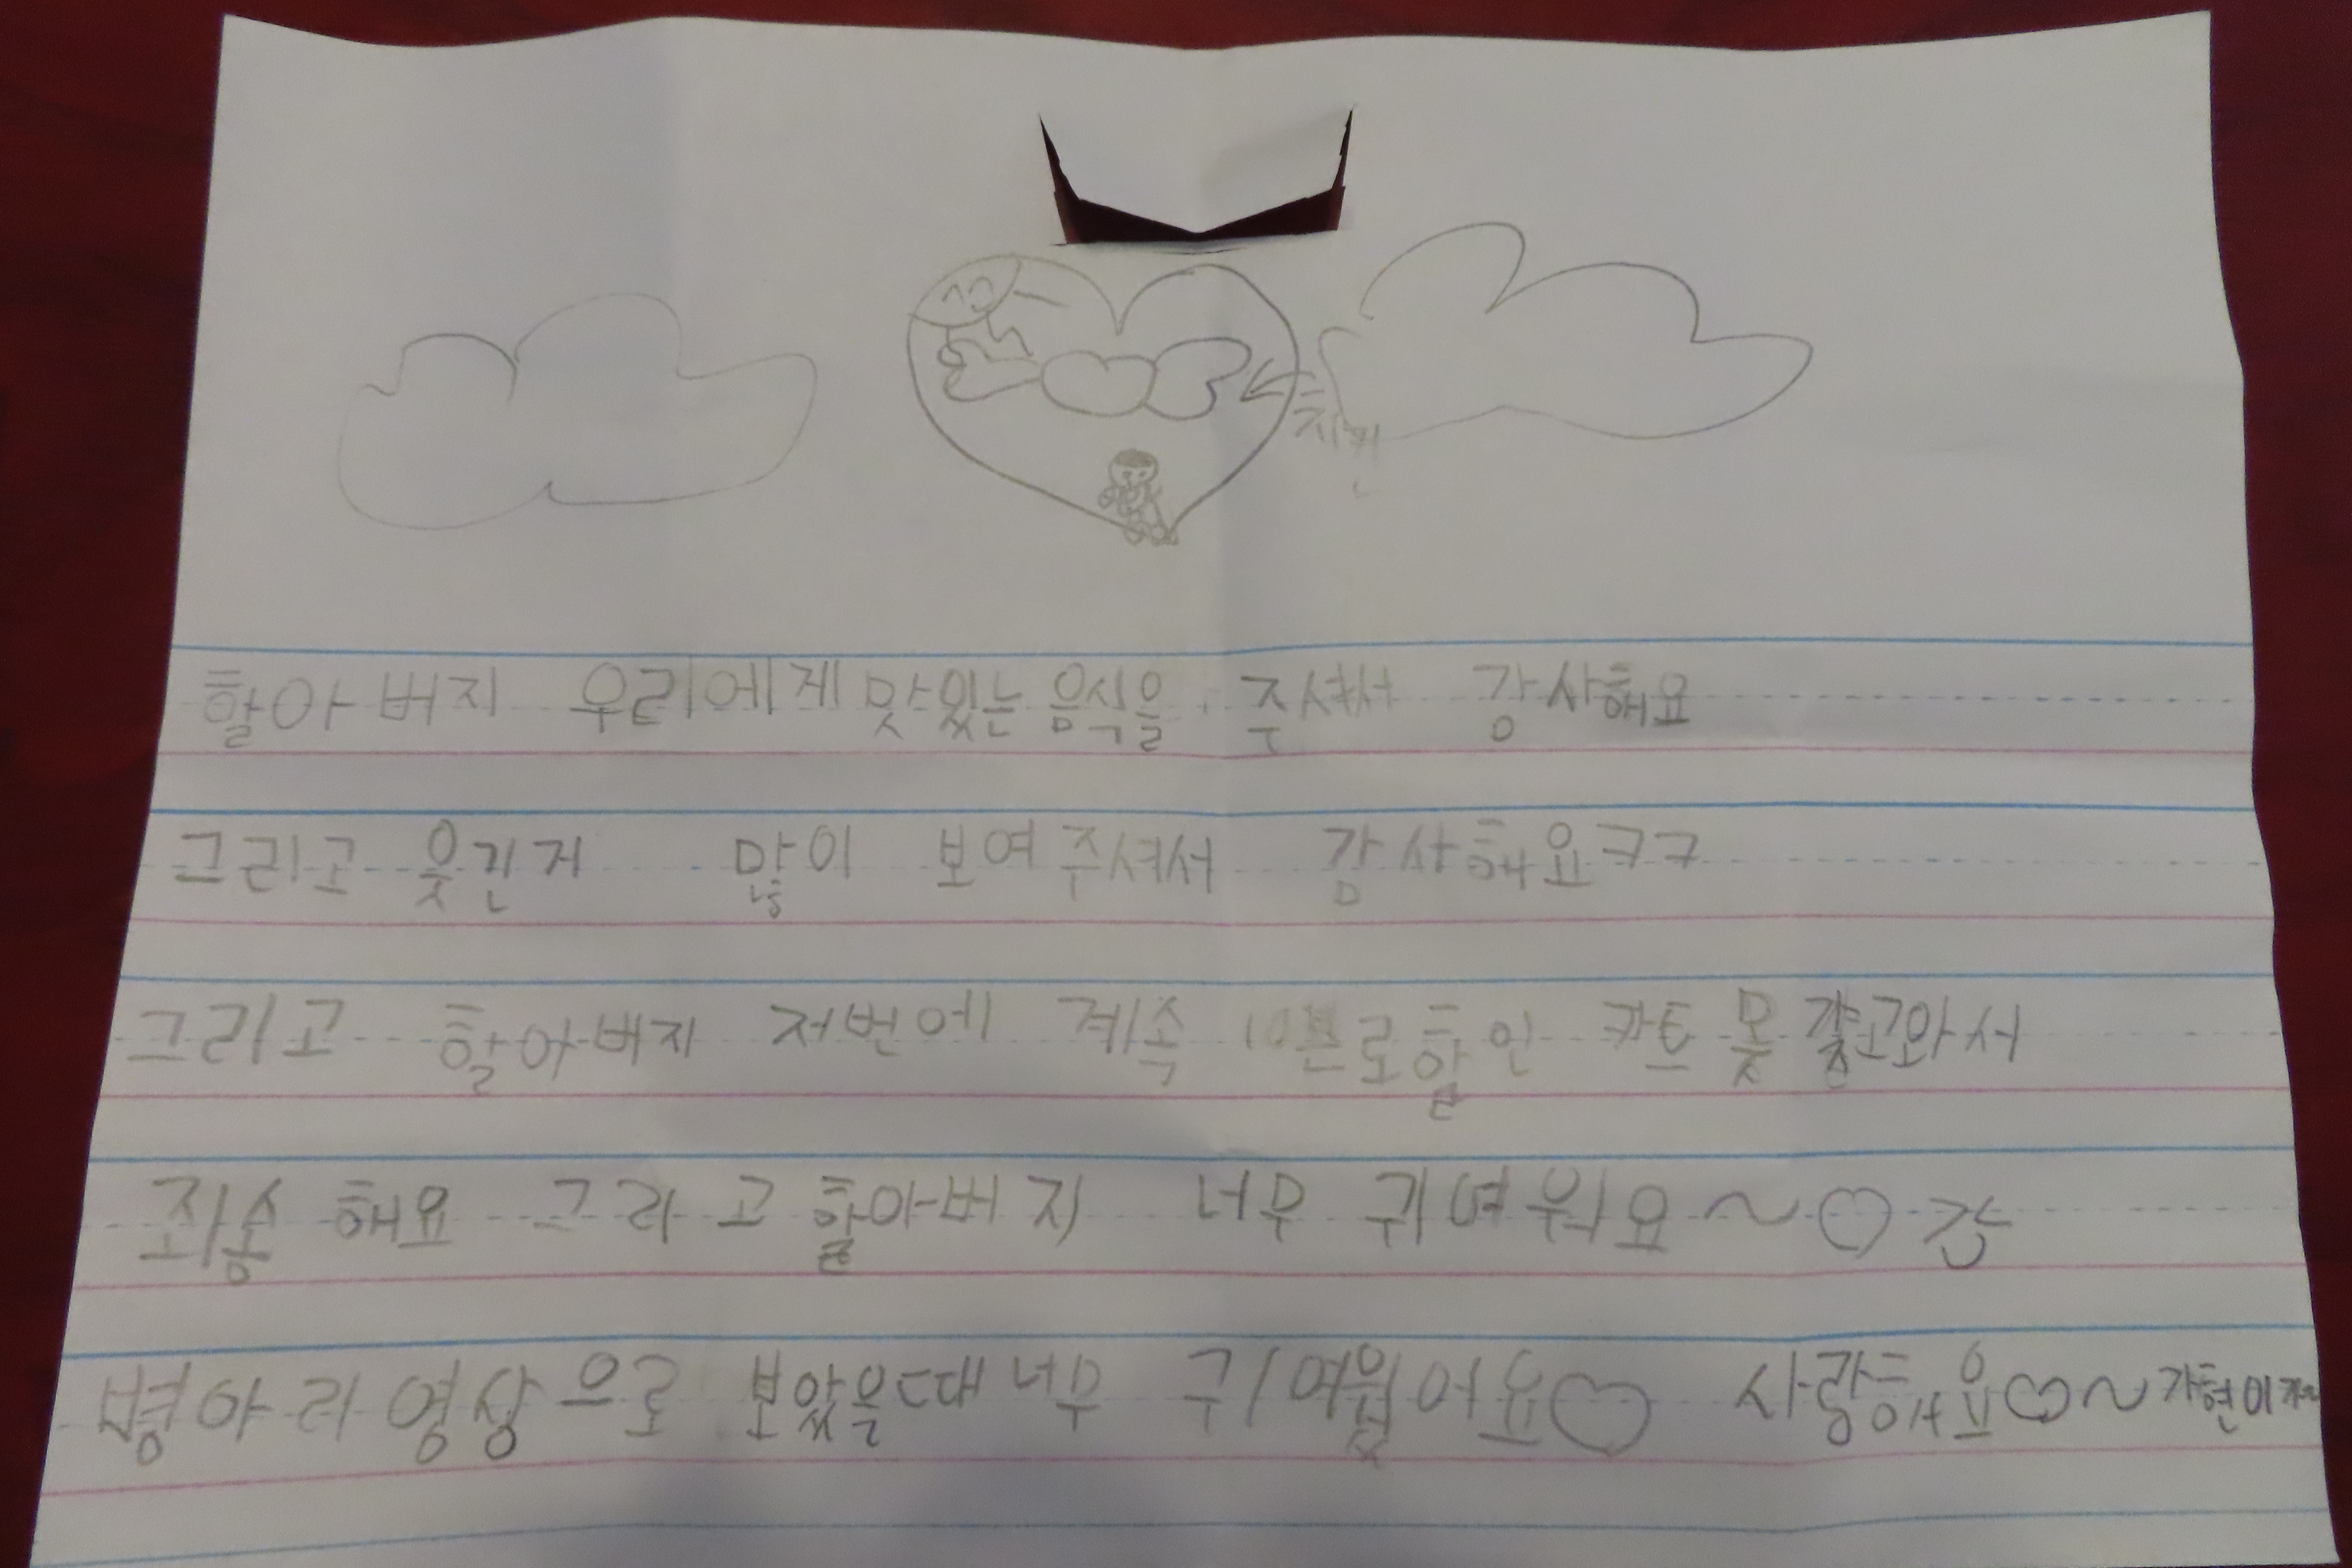 치킨
할아버지 우리에게 맛있는 음식을 주셔서 강사해요
그리고 웃긴거 많이 보여주셔서 감사해요ㅋㅋ
그리고 할아버지 저번에 계속 10쁘로할인 카트 못 갖고와서
죄송해요 그리고 할아버지 너무 귀여워요~♡
병아리영상으로 보았을때 너무 귀여웠어요♡ 사랑해요♡~가현이가